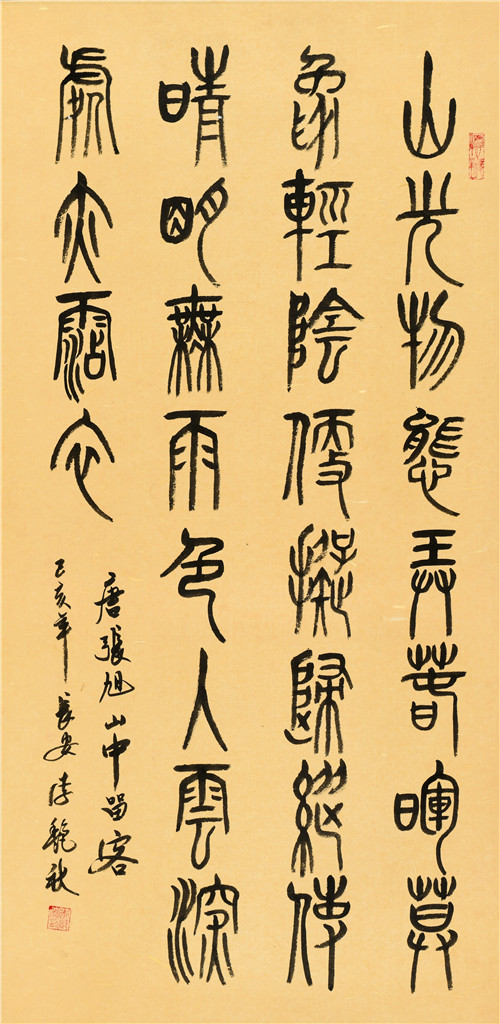 山光物態弄春暉莫
為輕陰便擬歸縱使
晴明無雨色入雲深
處亦霑衣
唐張旭山中留客
己亥年長安